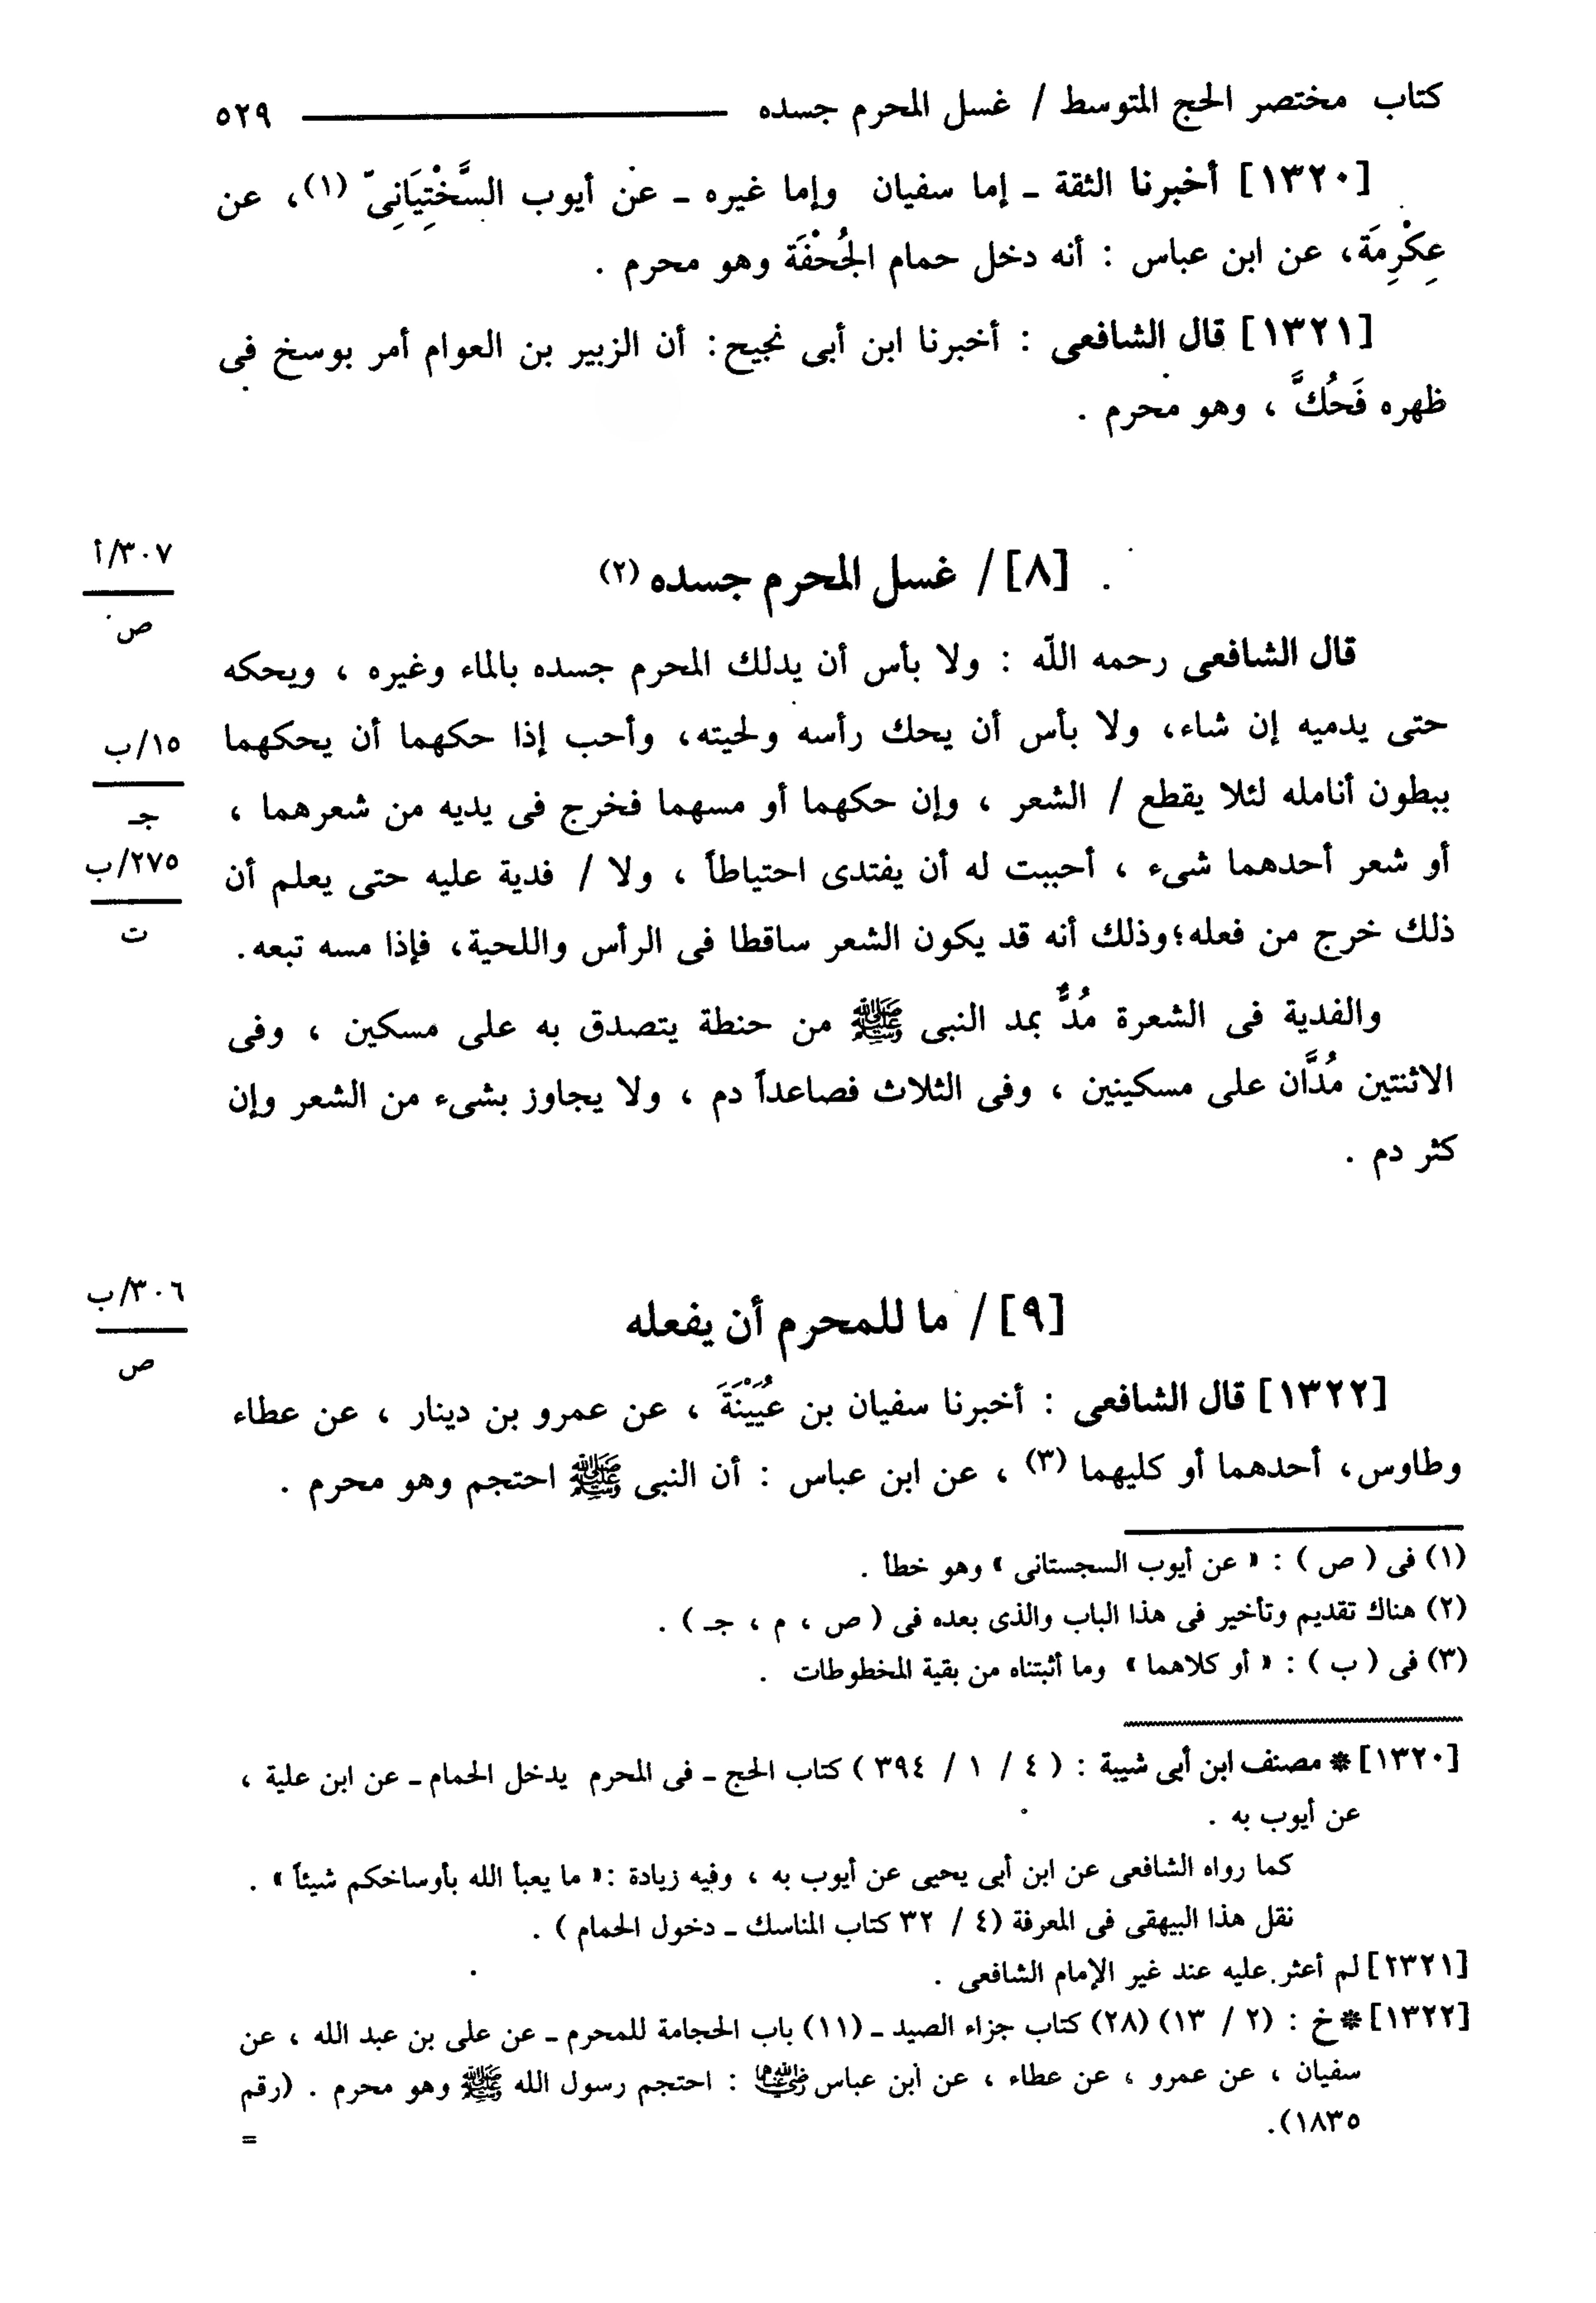 كتاب مختصر الحج المتوسط / غسل المحرم جسده ٥٢٩
[١٣٢٠] أخبرنا الثقة ـ إما سفيان وإما غيره ـ عن أيوب السَّخْتِيَانِىّ (١)، عن
عِكْرِمَة، عن ابن عباس : أنه دخل حمام الجُحْفَة وهو محرم .
[١٣٢١] قال الشافعى : أخبرنا ابن أبى نجيح: أن الزبير بن العوام أمر بوسخ فى
ظهره فَحُكَّ ، وهو محرم .
٣٠٧/أ
ص
[٨] / غسل المحرم جسده (٢)
قال الشافعى رحمه اللّه : ولا بأس أن يدلك المحرم جسده بالماء وغيره ، ويحكه
حتى يدميه إن شاء، ولا بأس أن يحك رأسه ولحيته، وأحب إذا حكهما أن يحكهما
١٥/ب
جـ
ببطون أنامله لئلا يقطع / الشعر ، وإن حكهما أو مسهما فخرج فى يديه من شعرهما ،
أو شعر أحدهما شىء ، أحببت له أن يفتدى احتياطاً ، ولا / فدية عليه حتى يعلم أن
٢٧٥/ب
ت
ذلك خرج من فعله؛وذلك أنه قد يكون الشعر ساقطا فى الرأس واللحية، فإذا مسه تبعه.
والفدية فى الشعرة مُدٌّ بمد النبى ﷺ من حنطة يتصدق به على مسكين ، وفى
الاثنتين مُدَّان على مسكينين ، وفى الثلاث فصاعداً دم ، ولا يجاوز بشىء من الشعر وإن
كثر دم .
٣٠٦/ب
ص
[٩] / ما للمحرم أن يفعله
[١٣٢٢] قال الشافعى : أخبرنا سفيان بن عُيَيْنَةَ ، عن عمرو بن دينار ، عن عطاء
وطاوس، أحدهما أو كليهما (٣) ، عن ابن عباس : أن النبى ﷺ احتجم وهو محرم .
(١) فى ( ص ) : « عن أيوب السجستانى » وهو خطأ .
(٢) هناك تقديم وتأخير فى هذا الباب والذى بعده فى ( ص ، م ، جـ ) .
(٣) فى ( ب ) : « أو كلاهما » وما أثبتناه من بقية المخطوطات .
[١٣٢٠] * مصنف ابن أبى شيبة : ( ٤ / ١ / ٣٩٤ ) كتاب الحج ـ فى المحرم يدخل الحمام ـ عن ابن علية ،
عن أيوب به .
كما رواه الشافعى عن ابن أبى يحيى عن أيوب به ، وفيه زيادة :« ما يعبأ الله بأوساخكم شيئاً » .
نقل هذا البيهقى فى المعرفة (٤ / ٣٢ كتاب المناسك ـ دخول الحمام ) .
[١٣٢١] لم أعثر عليه عند غير الإمام الشافعى .
[١٣٢٢] * خ : (٢ / ١٣) (٢٨) كتاب جزاء الصيد ـ (١١) باب الحجامة للمحرم ـ عن على بن عبد الله ، عن
سفيان ، عن عمرو ، عن عطاء ، عن ابن عباس رضي الله عنهما : احتجم رسول الله ﷺ وهو محرم . (رقم
١٨٣٥).
=